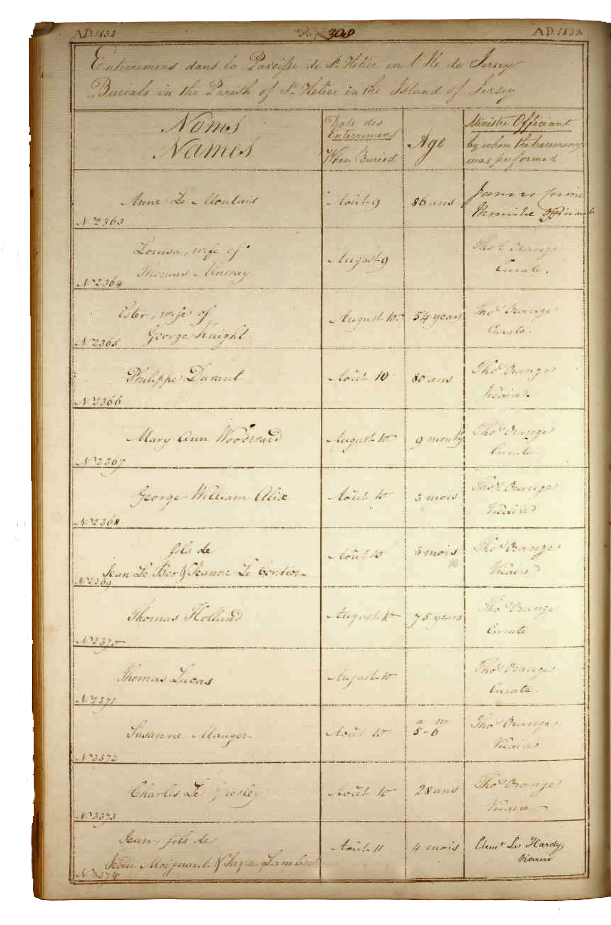 308
Enterremens dans la Paroisse de St. Helier en l'Ile de Jersey
Burials in the Parish of St. Helier in the Island of Jersey
Noms
Names
Date des
Enterremens
When Buried
Age
Ministre Officiant
by whom the Ceremony
was performed
Anne Le
Août 9
86 ans
Ministre Officiant
No. 2363
Louisa, wife of
Thomas Murray
August 9
Thos. Orange
Curate.
No. 2364
Ester, wife of
George Knight
August 10
54 years
Thos. Orange
Curate
No. 2365
Philippe Durant
Août 10
80 ans
Thos. Orange
Vicaire
No. 2366
Mary Ann Woodward
August 10
9 months
Thos. Orange
Curate
No. 2367
George William Alix
Août 10
3 mois
Thos. Orange
Vicaire
No. 2368
fils de
Jean Le Ber & Jeanne Le
Août 10
mois
Thos. Orange
Vicaire
No. 2369
Thomas Holland
August 10
75 years
Thos. Orange
Curate
No. 2370
Thomas Lucas
August 10
Thos. Orange
Curate
No. 2371
Susanne Mauger
Août 10
a m
5-6
Thos. Orange
Vicaire
No. 2372
Charles Le Gresley
Août 10
28 ans
Thos. Orange
Vicaire
No. 2373
Jean, fils de
Jean Moignard & Lambert
Août 11
4 mois
Clemt. Le Hardy,
Vicaire
No. 2374